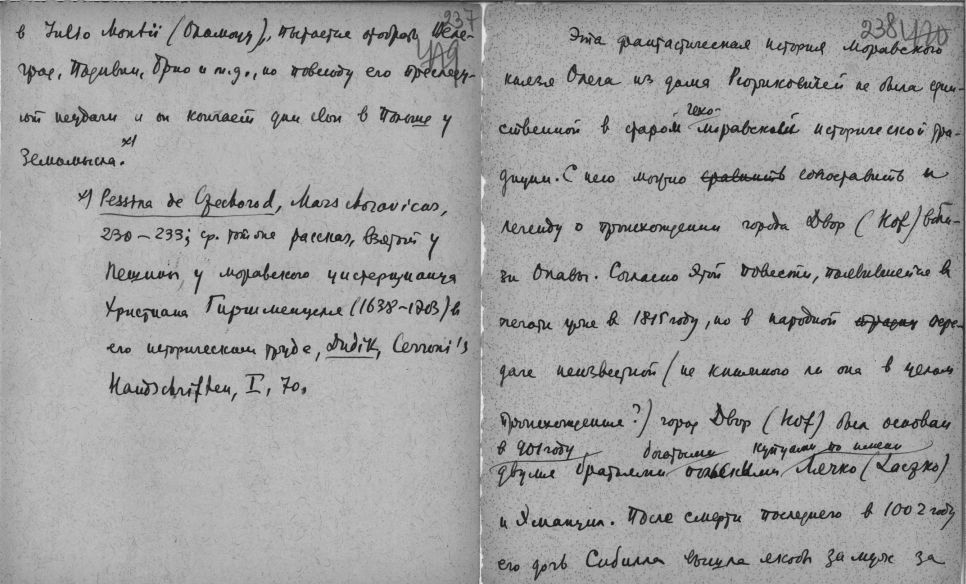 237
479
в Julio Montii (Оломоуц), пытается отобрать Веле-
град, Подивин, Брно и т.д., но повсюду его преследу-
ют неудачи и он кончает дни свои в Польше у
Земомысла.*)
*) Pessina de Czechorod, Mars Moravicus,
230–233; ср. также рассказ, взятый у
Пешины, у моравского цистерцианца
Христиана Гиршменцеля (1638–1703) в
его историческом труде, Dudik, Cerroni's
Handschriften, I, 70.
238 470
Эта фантастическая история моравского
князя Олега из дома Рюриковичей не была един-
ственной в старой чехо-моравской исторической тра-
диции. С нею можно сравнить сопоставить и
легенду о происхождении города Двор (Hof) вбли-
зи Опавы. Согласно этой повести, появившейся в
печати уже в 1815 году, но в народной пере-
даче неизвестной (не книжного ли она в целом
происхождения?) город Двор (Hof) был основан
в 901 году богатыми купцами по имени
двумя братьями Лячко (Laczko)
и . После смерти последнего в 1002 году
его дочь Сибилла вышла якобы замуж за